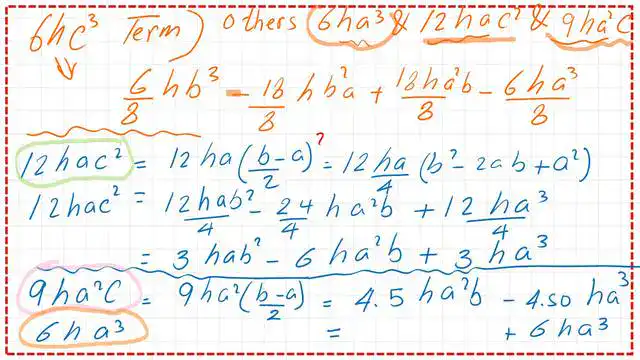 6hc³ Term) others 6ha³ & 12hac² & 9ha²c
6/8 hb³ - 18/8 hb²a + 18ha²b/8 - 6ha³/8
12hac² = 12ha(b-a/2)² = 12ha/4 (b² - 2ab + a²)
12hac² = 12hab²/4 - 24/4 ha²b + 12ha³/4
= 3hab² - 6ha²b + 3ha³
9ha²c = 9ha²(b-a/2) = 4.5ha²b - 4.50ha³
6ha³ = + 6ha³